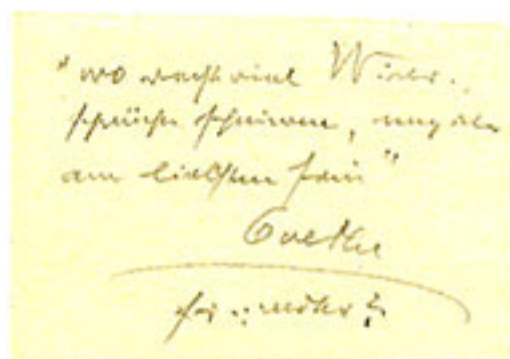 "wo recht viel Wider-
sprüche schwirren, mag ich
am liebsten sein"
Goethe